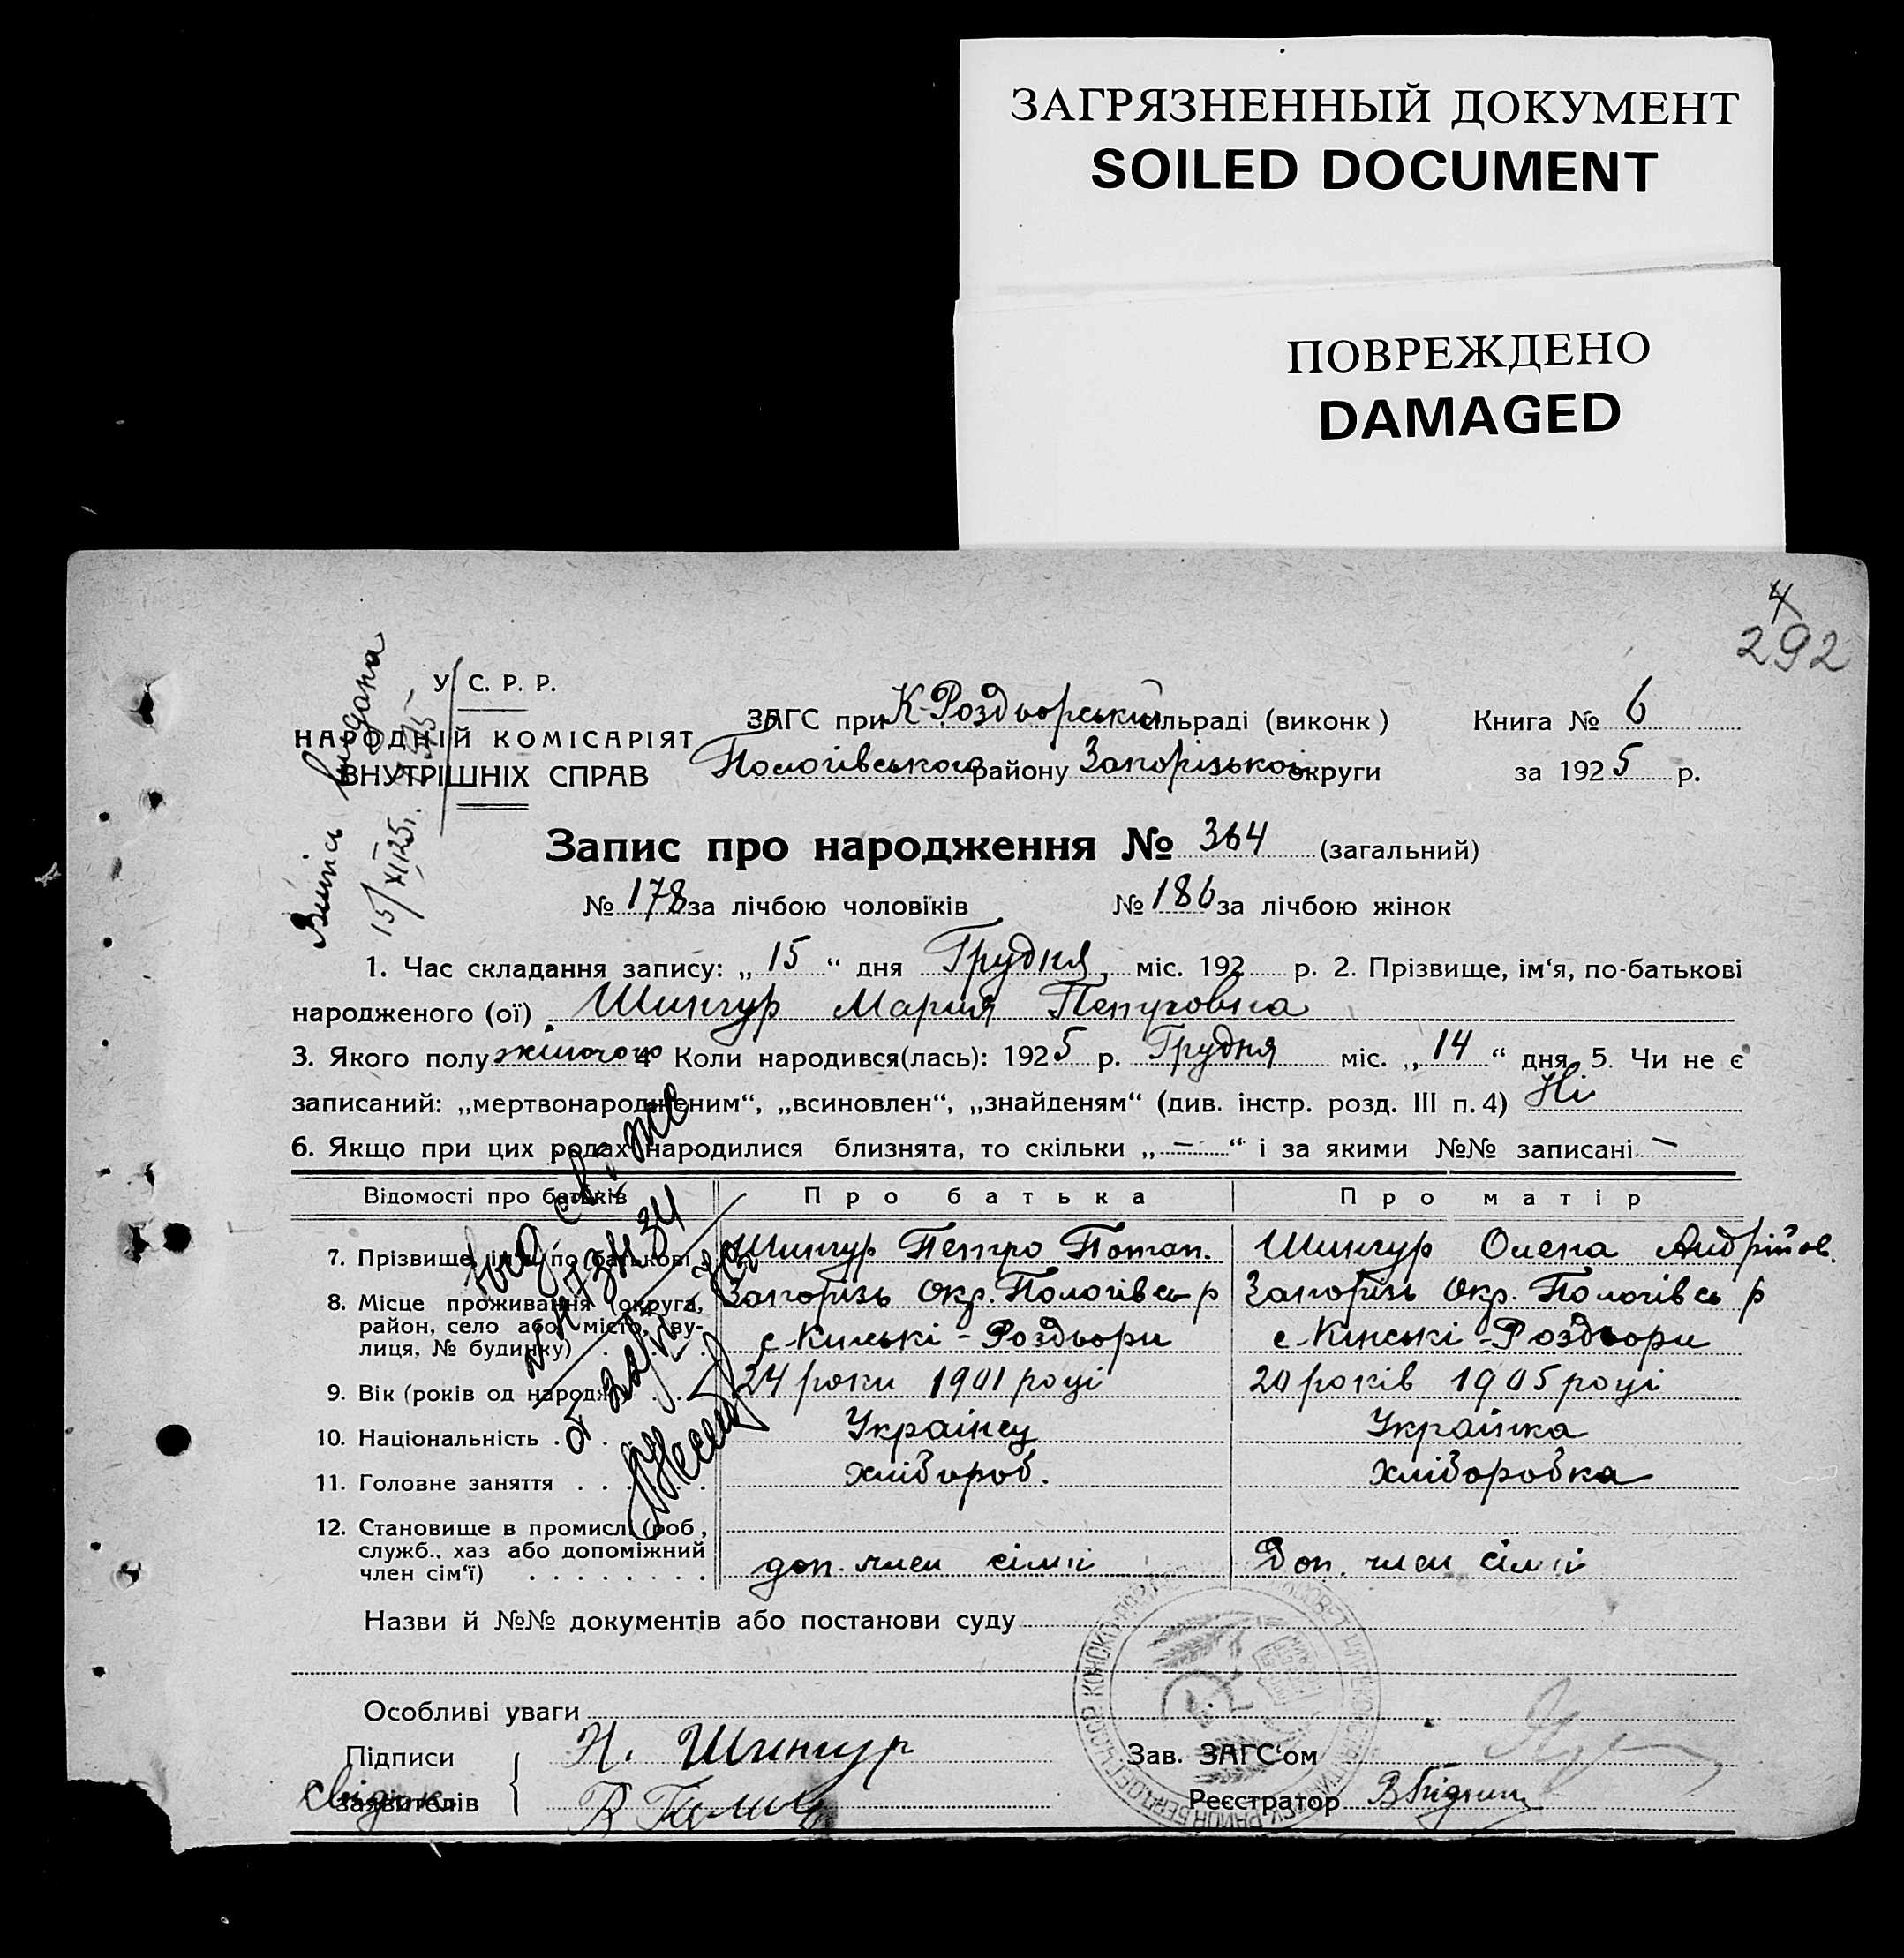 ЗАГРЯЗНЕННЫЙ ДОКУМЕНТ
SOILED DOCUMENT
ПОВРЕЖДЕНО
DAMAGED
4
292
У. С. Р. Р.
НАРОДНІЙ КОМІСАРІЯТ
ВНУТРІШНІХ СПРАВ
Витяг видана
15/XII 25.
ЗАГС при К-Роздорській сільраді (виконк) Книга № 6
Пологівського району Запорізькой округи за 1925 р.
Запис про народження № 364 (загальний)
№ 178 за лічбою чоловіків № 186 за лічбою жінок
1. Час складання запису: „ 15 “ дня Грудня міс. 192 р. 2. Прізвище, ім‘я, по-батькові
народженого (ої) Шингур Мария Петровна
3. Якого полу жіночого 4 Коли народився(лась): 1925 р. Грудня міс. „ 14 “ дня 5. Чи не є
записаний: „мертвонародженим“, „всиновлен“, „знайденям“ (див. інстр. розд. III п. 4) Ні
6. Якщо при цих родах народилися близнята, то скільки „ — “ і за якими №№ записані —
Відомості про батьків Про батька Про матір
7. Прізвище, ім‘я, по батькові Шингур Петро Потап. Шингур Олена Андрійов.
8. Місце проживання (округа, Запорізь Окр. Пологівсь р Запорізь Окр. Пологівсь р
район, село або місто, ву- с Кінські - Роздори с Кінські - Роздори
лиця, № будинку)
9. Вік (років од народж 24 роки 1901 році 20 років 1905 році
10. Національність Українец Українка
11. Головне заняття хлібороб. хліборобка
12. Становище в промислі (роб,
служб., хаз або допоміжний доп. член сімї Доп. член сімї
член сім‘ї)
Назви й №№ документів або постанови суду
Особливі уваги
Підписи Н. Шингур Зав. ЗАГС‘ом
заявителів Реєстратор
свідок